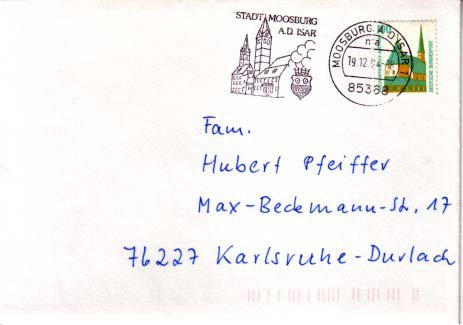 STADT MOOSBURG
A.D. ISAR
MOOSBURG A D ISAR 1
19.12.94
85368
DEUTSCHE BUNDESPOST
Fam.
Hubert Pfeiffer
Max-Beckmann-Str. 17
76227 Karlsruhe-Durlach